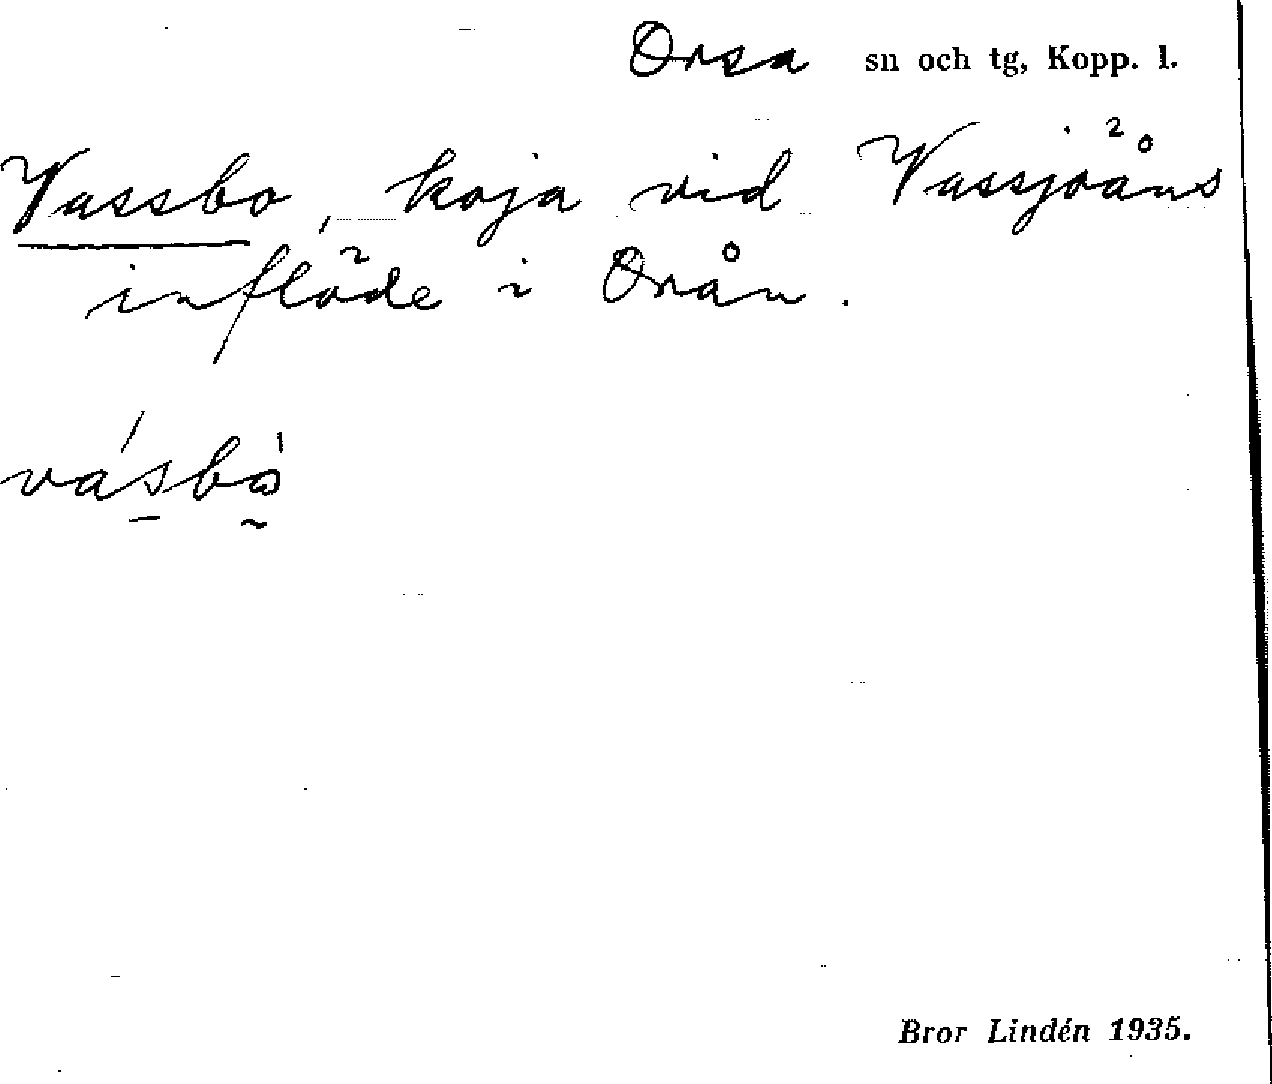 Orsa sn och tg, Kopp. l.
Vassbo, koja vid Vassjöåns
inflöde i Orån.
Bror Lindén 1935.